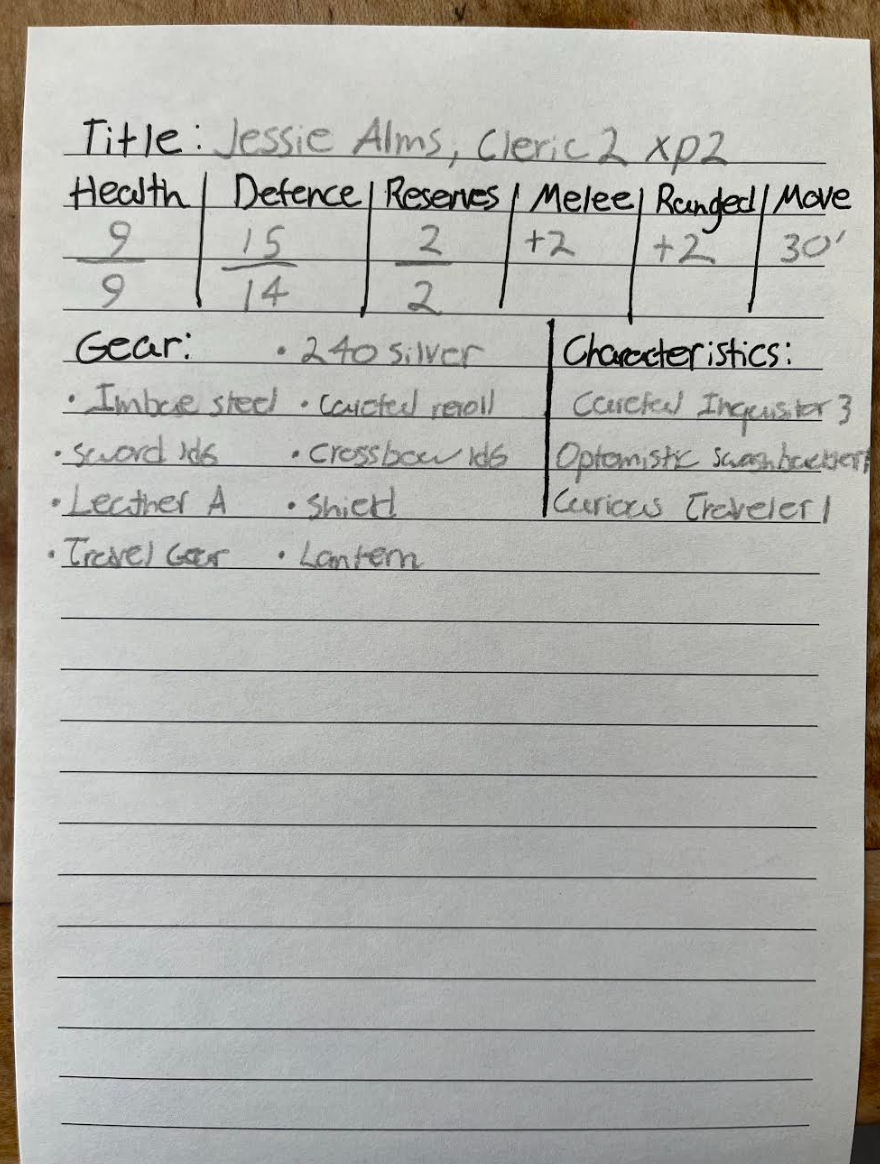 Title: Jessie Alms, Cleric 2 xp2
Health Defence Reserves Melee Ranged Move
9 15 2 +2 +2 30'
9 14 2
Gear: • 240 silver Characteristics:
• Imbue steel • Careful reroll Careful Inquisitor 3
• Sword 1d6 • Crossbow 1d6 Optomistic Swashbuckler
• Leather A • Shield Curious Traveler 1
• Travel Gear • Lantern